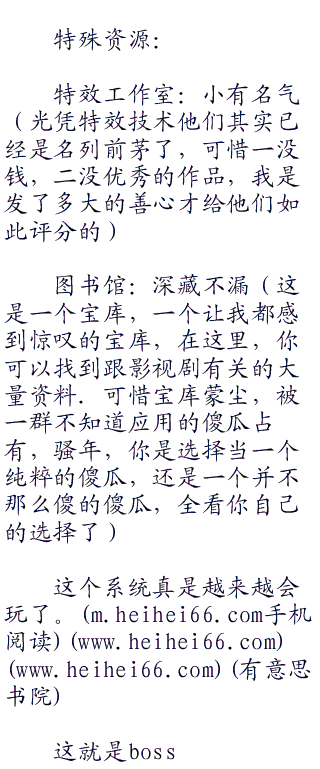 特殊资源：
特效工作室：小有名气
（光凭特效技术他们其实已
经是名列前茅了，可惜一没
钱，二没优秀的作品，我是
发了多大的善心才给他们如
此评分的）
图书馆：深藏不漏（这
是一个宝库，一个让我都感
到惊叹的宝库，在这里，你
可以找到跟影视剧有关的大
量资料．可惜宝库蒙尘，被
一群不知道应用的傻瓜占
有，骚年，你是选择当一个
纯粹的傻瓜，还是一个并不
那么傻的傻瓜，全看你自己
的选择了）
这个系统真是越来越会
玩了。(m.heihei66.com手机
阅读)(www.heihei66.com)
(www.heihei66.com)(有意思
书院)
这就是boss